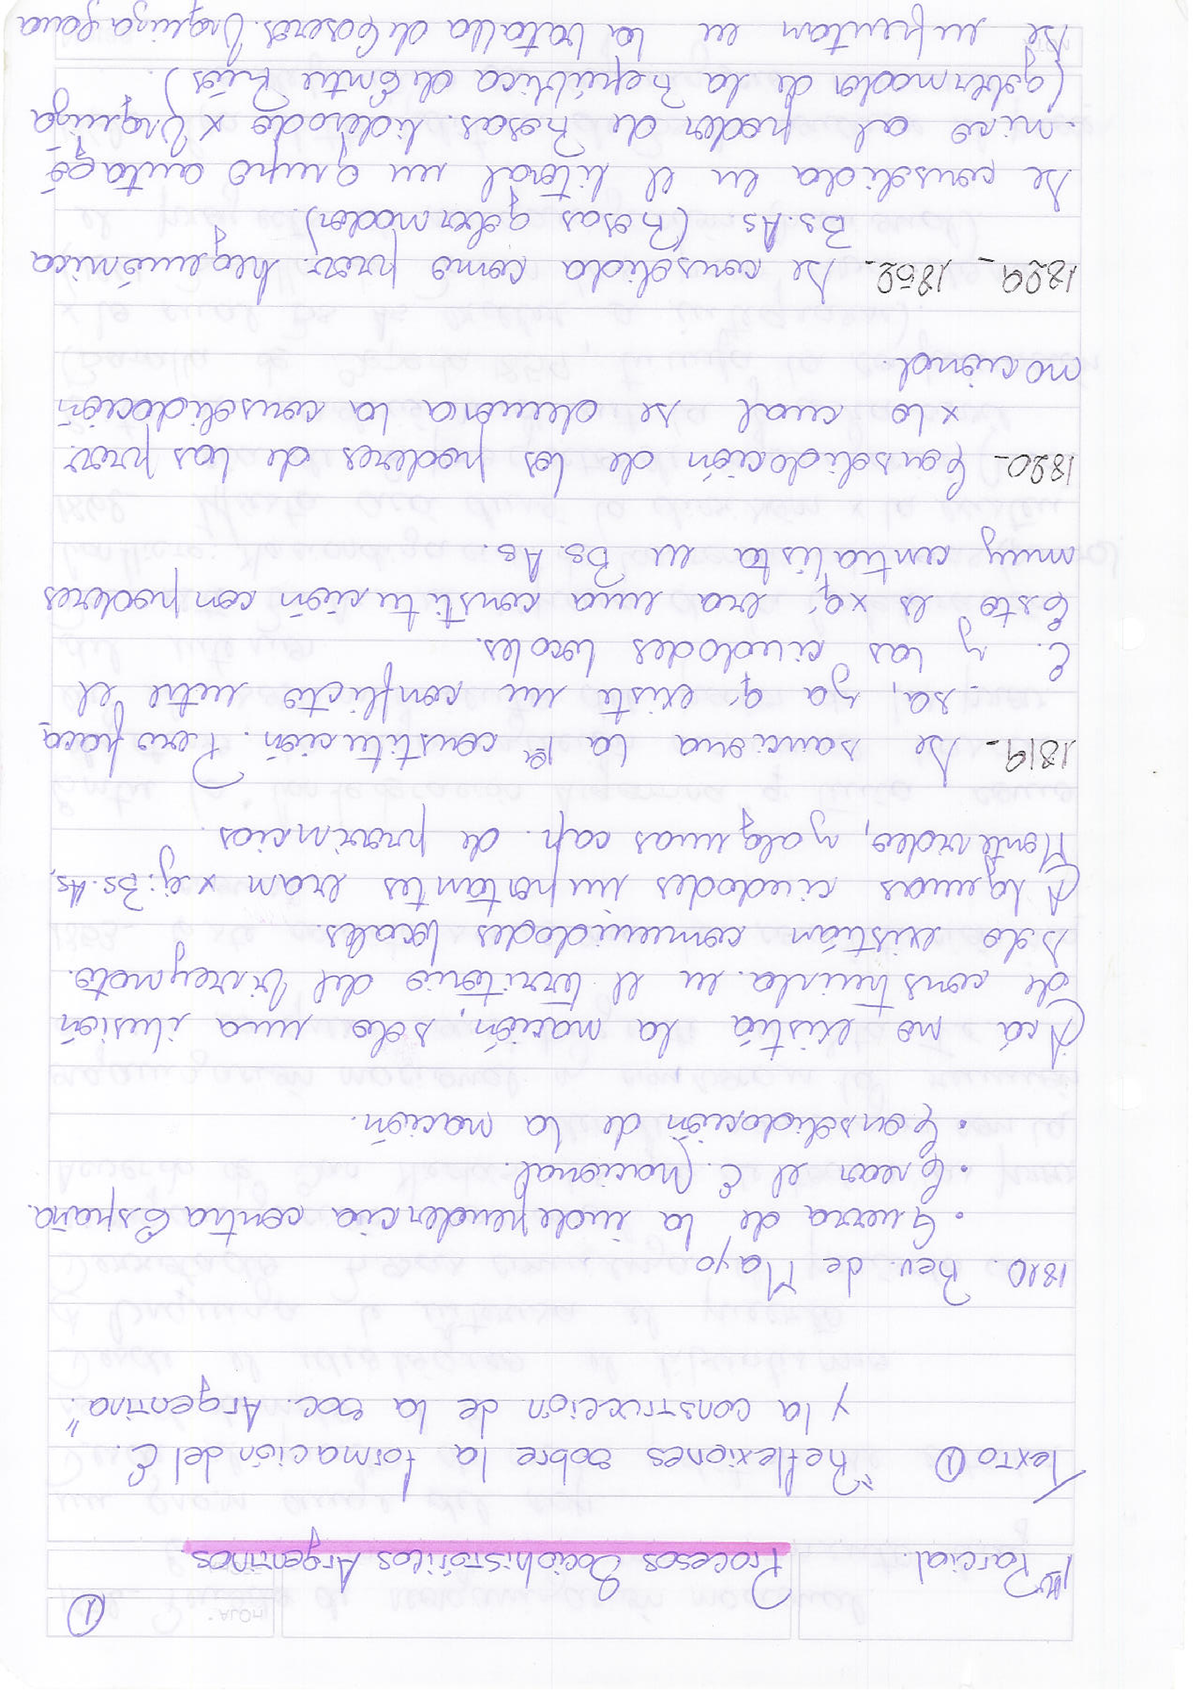 HOJA:
①
1er Parcial.
Procesos Sociohistóricos Argentinos.
Texto ① "Reflexiones sobre la formación del E.
y la construcción de la Soc. Argentina".
1810. Rev. de Mayo
• Guerra de la independencia contra España.
• Crear el E. Nacional.
• Consolidación de la nación.
Acá no existía la nación, solo una ilusión
de construirla. en el territorio del Virreynato.
Solo existían comunidades locales.
Algunas ciudades importantes eran x ej: Bs. As,
Montevideo, y algunas cap. de provincias.
1819- Se sanciona la 1er constitución. Pero fraca
sa, ya q' existe un conflicto entre el
E. y las ciudades locales.
Esto es xq' era una constitución con poderes
muy centralista en Bs. As.
1820- Consolidación de los poderes de las prov.
x lo cual se demora la consolidación
nacional.
1829 - 1852- Se consolida como prov. hegemónica
Bs. As. (Rosas gobernador).
Se consolida en el litoral un grupo antagó
nico al poder de Rosas. liderado x Urquiza
(gobernador de la República de Entre Ríos).
Se enfrentan en la batalla de Caseros. Urquiza gana